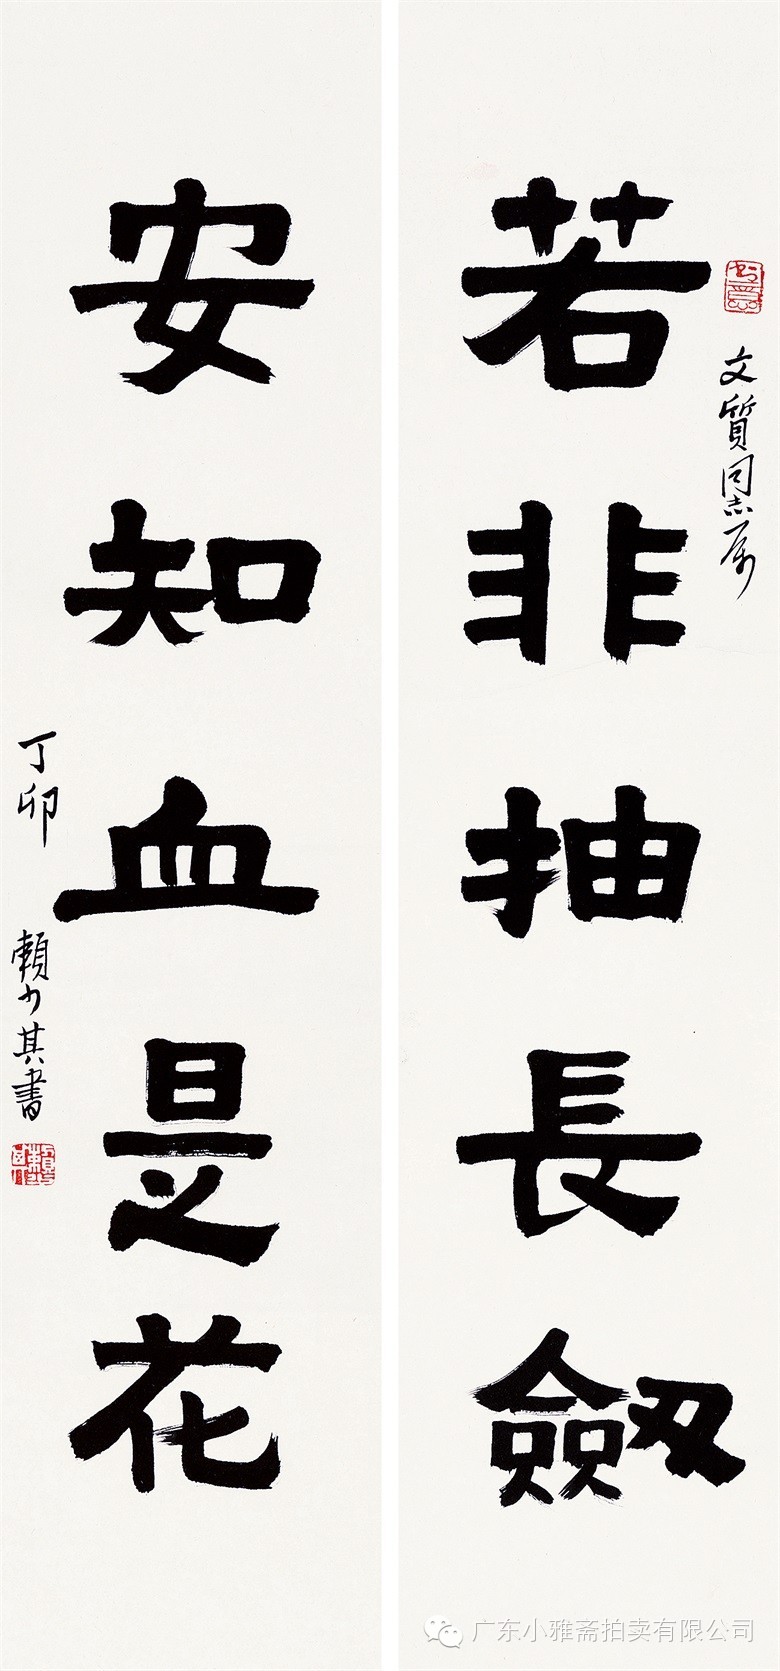 文質同志屬
若非抽長劒
安知血是花
丁卯 賴少其書
广东小雅斋拍卖有限公司